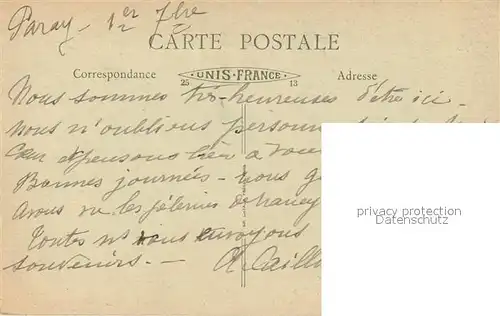 Paray - 1er 7bre
CARTE POSTALE
Correspondance
UNIS-FRANCE
25 13
Adresse
Nous sommes très-heureuses d'être ici -
nous n'oublions personn
Cœur et pensons bien à vous
Bonnes journées - nous
avons vu les pèlerins de nancy
Toutes ns vous envoyons
souvenirs. -
privacy protection
Datenschutz